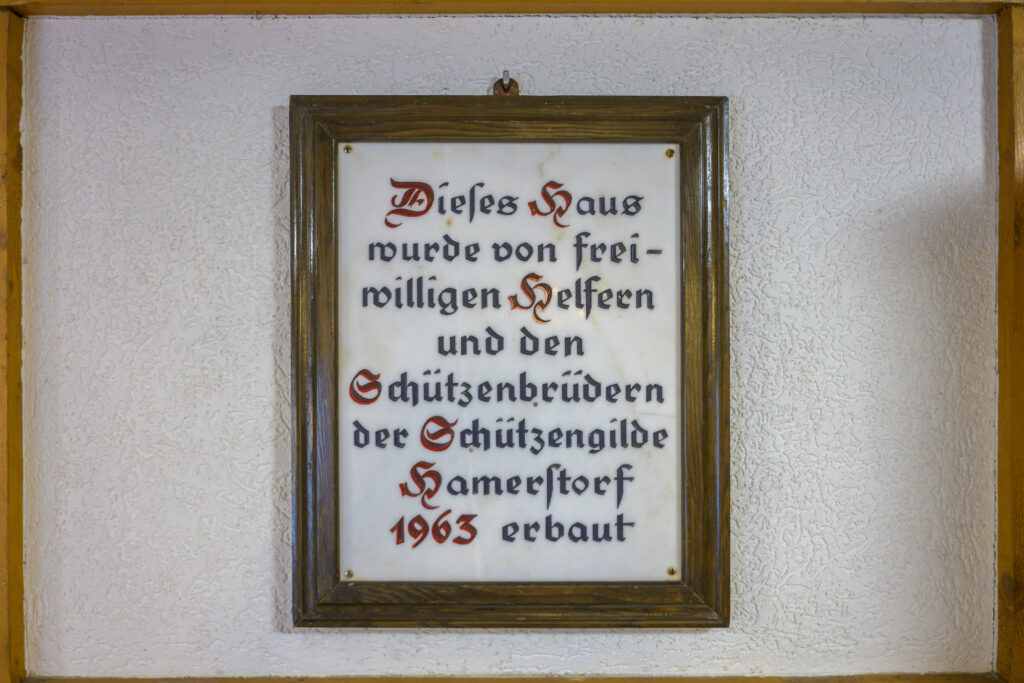 Dieſes Haus
wurde von frei-
willigen Helfern
und den
Schützenbrüdern
der Schützengilde
Hamerſtorf
1963 erbaut